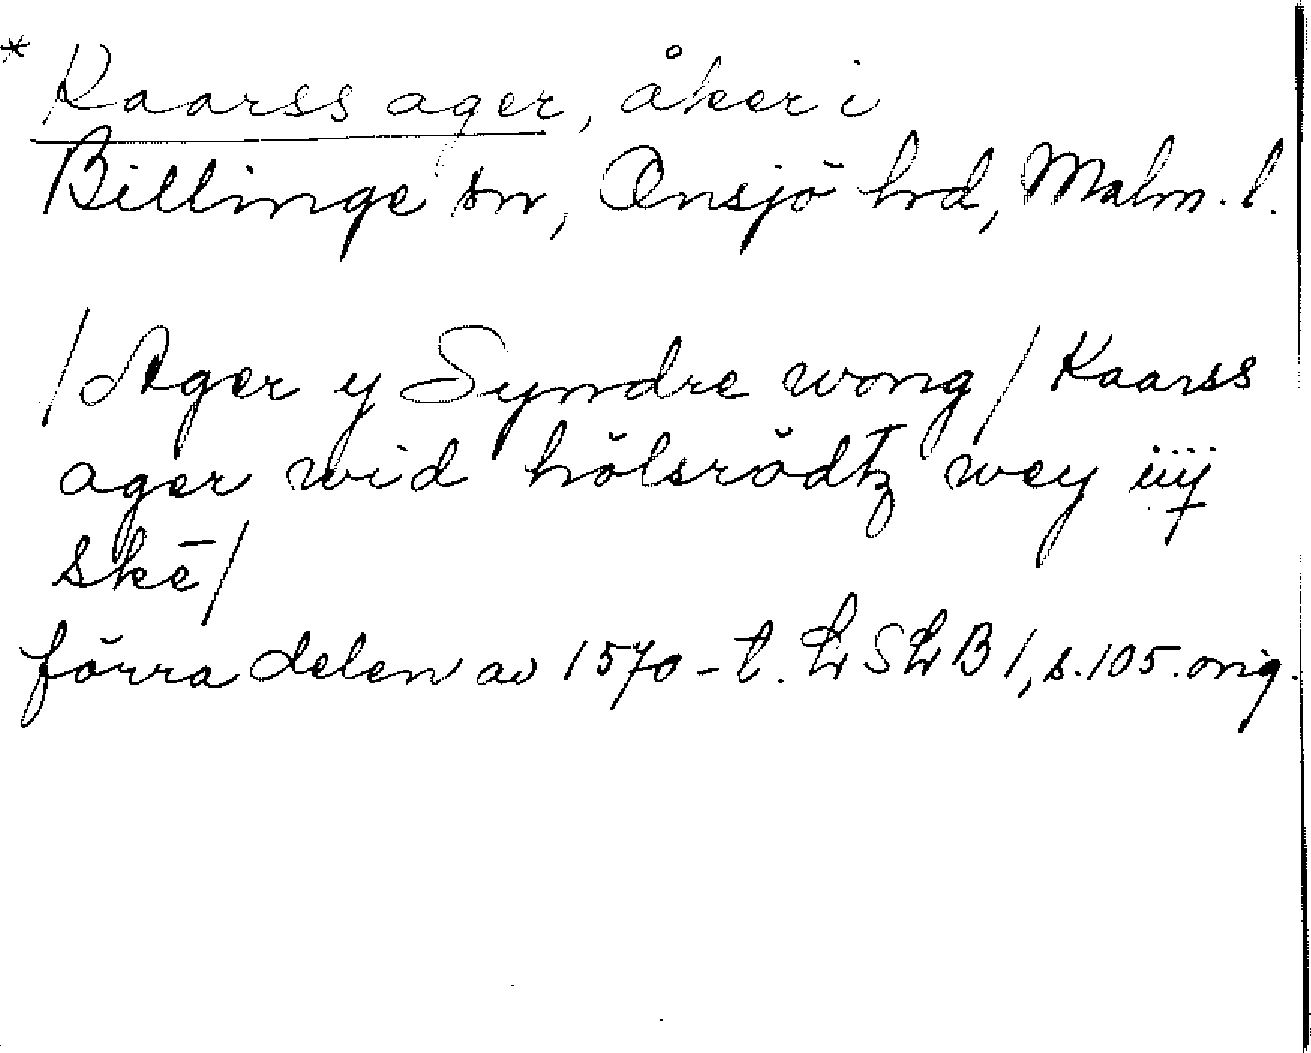 * Kaarss ager, åker i
Billinge sn, Onsjö hrd, Malm. l.
/Ager y Syndre wong/ Kaarss
ager wid hölsrödtz wey iiij
skē/
förra delen av 1570-t. LSLB 1, s. 105. orig.